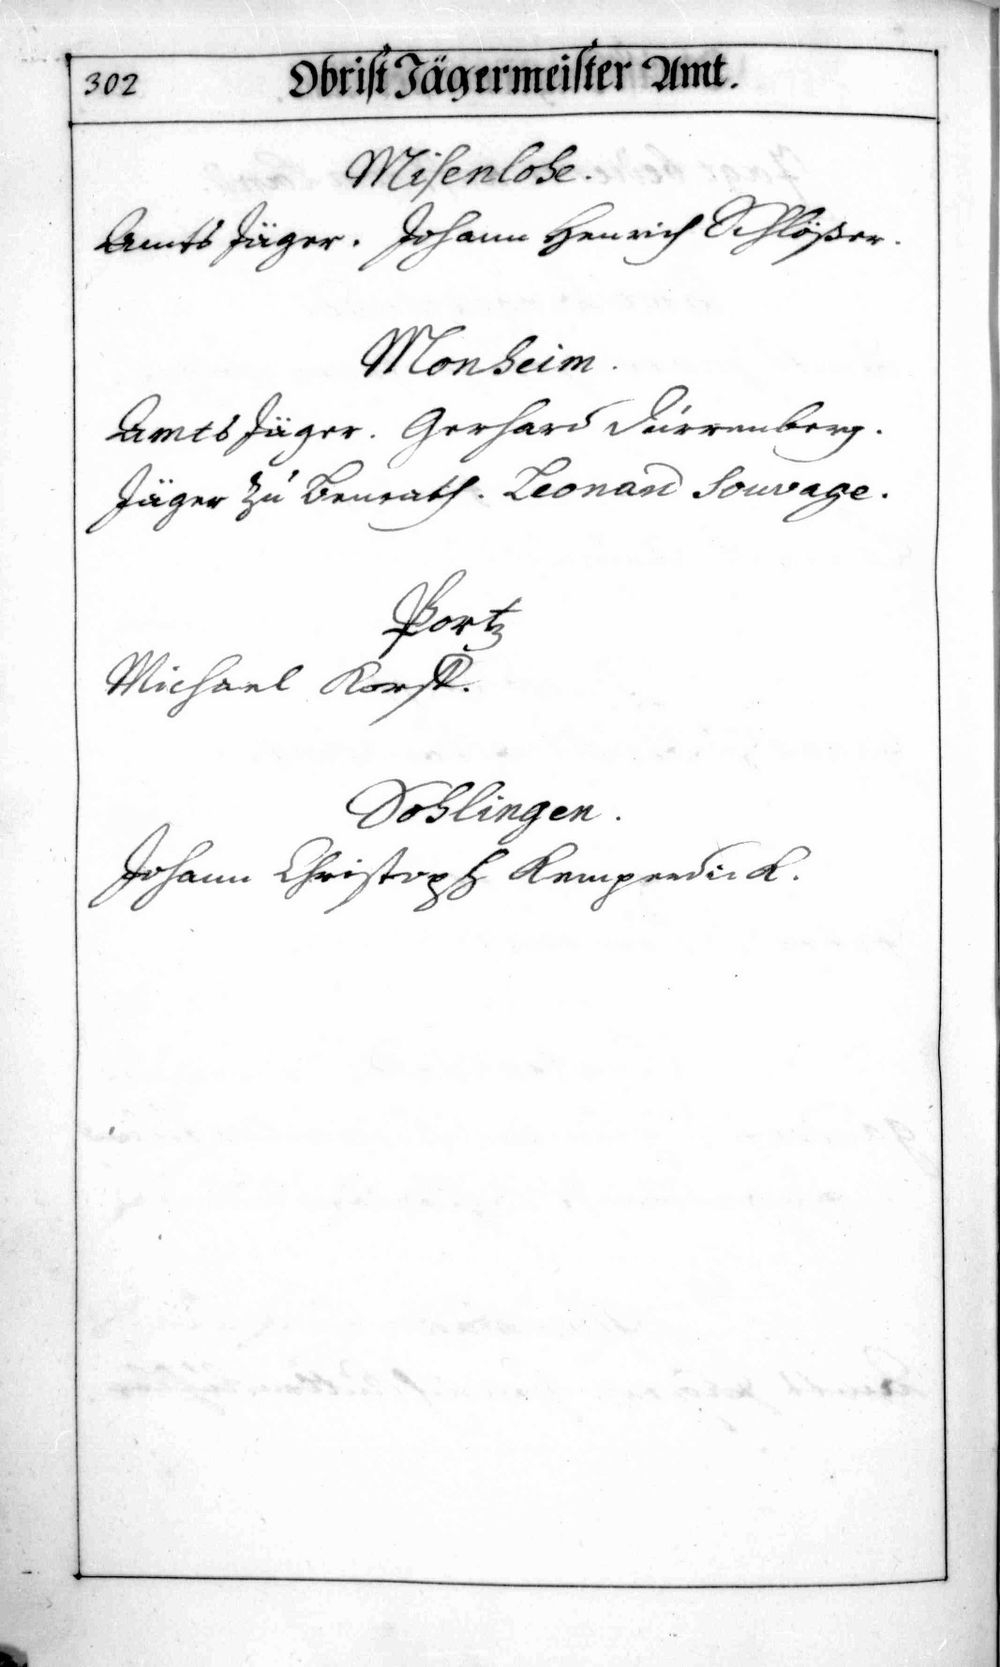 302
Obrist Jägermeister Amt.
Misenlohe.
Amts Jäger. Johann Henrich Schlößer.
Monheim.
Amts Jäger. Gerhard Dürrenberg.
Jäger zu Benrath. Leonard Souvage.
Portz
Michael Korst.
Sohlingen.
Johann Christoph Kemperdick.